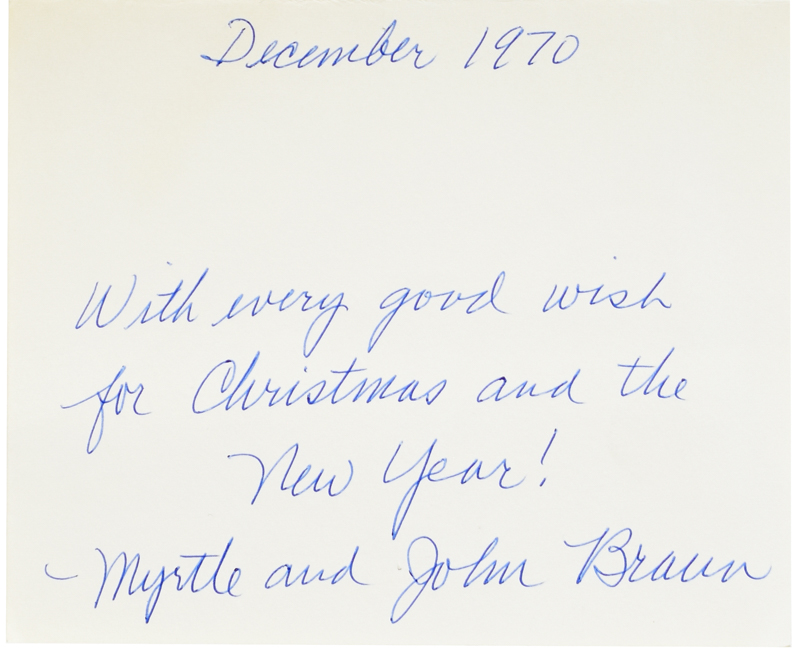 December 1970
With every good wish
for Christmas and the
New Year!
- Myrtle and John Braun